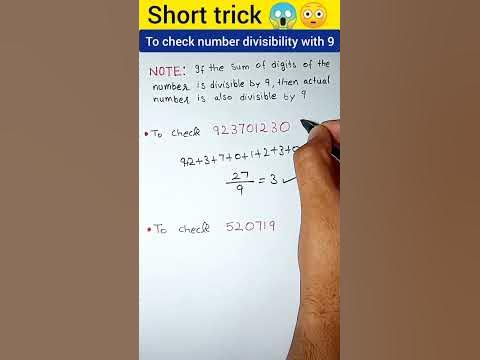 Short trick 😱😳
To check number divisibility with 9
NOTE: If the sum of digits of the
number is divisible by 9, then actual
number is also divisible by 9
• To check 923701230
9+2+3+7+0+1+2+3+0
27/9 = 3 ✓
• To check 520719